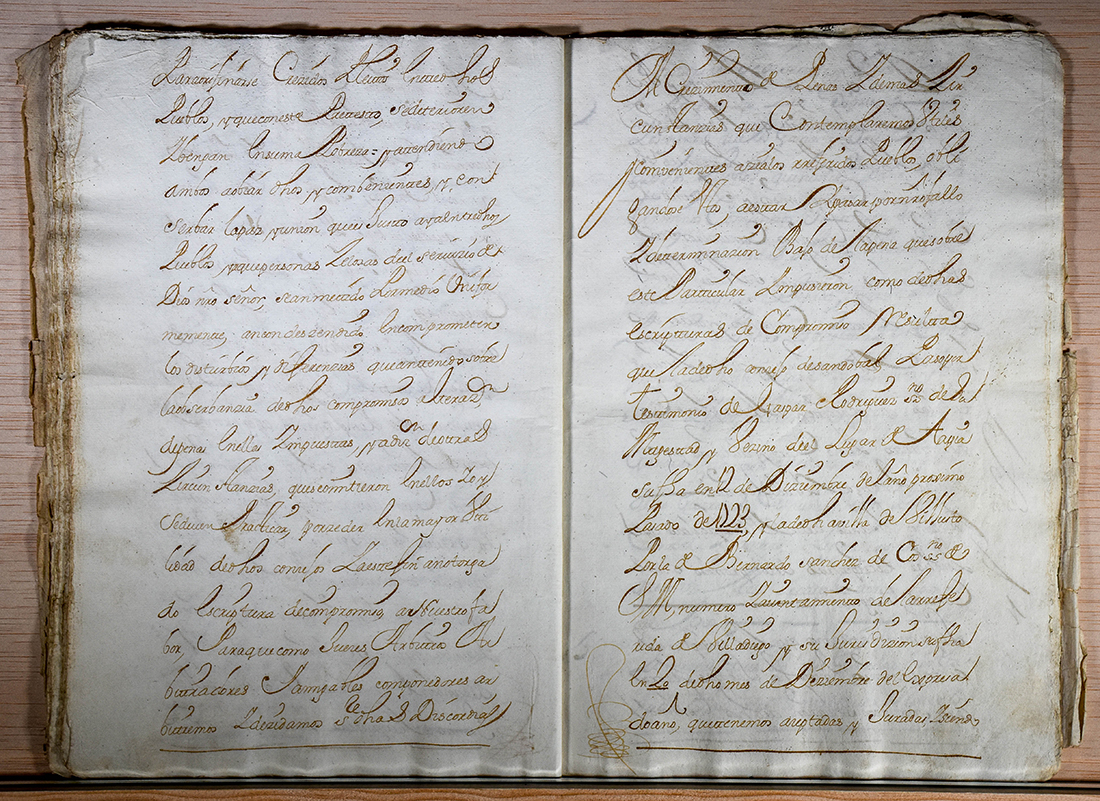 Para orixinarse Crezidos Pleitos entredhos
Pueblos, y que con este Pretexto, se deterioren
y bengan en suma Pobreza = y atendiendo
ambos a obiar dhos ynconbenientes, y con
serbar la paz y union que es Justo aya entre dhos
Pueblos, y que personas Zelosas del servizio de
Dios nro señor, sean metido Por medio Unifor
memente, an condeszendido en comprometer
los disturbios y diferenzias que an tenido sobre
la obserbanzia de dhos compromisos alteraz.on
de penas en ellas Ympuestas, y adizn de otras
Zircunstanzias, que se omitieron en ellos Y oy
se deuen Practicar, por zeder en la mayor Uti
lidad de dhos conzejos Y a este fin an otorga
do Escriptura de compromiso, a Nuestro fa
bor, Para que como Juezes Arbitros Ar
bitradores Y amigables componedores ar
bitremos Y dezidamos sre dhas Discordias
Crezimiento de Penas Y demas Zir
cunstanzias que Contemplaremos Utiles
y convenientes a zia los referidos Pueblos, obli
gandose estos, a estar Y pasar por nro fallo
Y determinazion Bajo de la pena que sobre
este Particular Ympusieron como de dhas
escripturas de Compromiso Resulta
que la de dho conzejo de sandobal, Paso por
testimonio de Gaspar Rodriguez sno de su
Magestad y Vezino del Lugar de
su fha en 12 de Diziembre del año proximo
Pasado de 1723, y la de dha villa de Villusto
Por la de Bernardo sanchez de Cos sno de
S M, numero Y aiuntamiento de la
de Villadiego y su Jurisdizion su fha
en 20 de dho mes de Deziembre del expresa
do año, que tenemos azeptadas y Juradas Y siendo